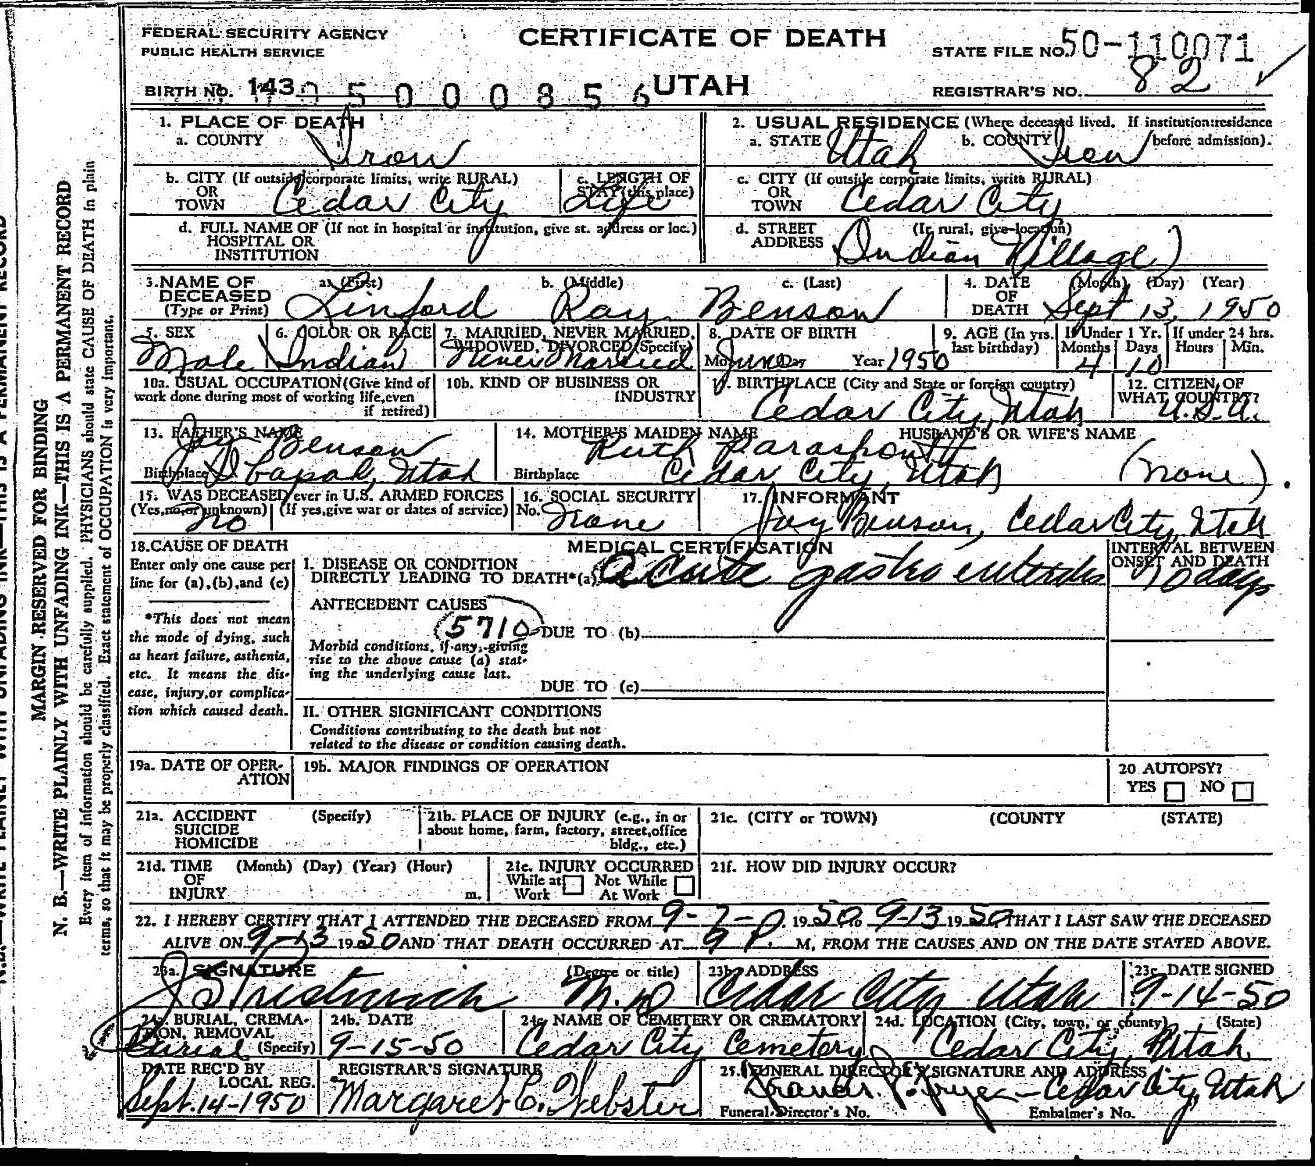 FEDERAL SECURITY AGENCY
PUBLIC HEALTH SERVICE
CERTIFICATE OF DEATH
STATE FILE NO. 50-110071
BIRTH No. 143 05000856
UTAH
REGISTRAR'S NO. 82
1. PLACE OF DEATH
a. COUNTY Iron
2. USUAL RESIDENCE (Where deceased lived. If institution:residence before admission).
a. STATE Utah b. COUNTY Iron
b. CITY (If outside corporate limits, write RURAL) OR TOWN Cedar City
c. LENGTH OF STAY (this place) Life
c. CITY (If outside corporate limits, write RURAL) OR TOWN Cedar City
d. FULL NAME OF (If not in hospital or institution, give st. address or loc.) HOSPITAL OR INSTITUTION
d. STREET ADDRESS (If rural, give location) Indian Village)
3. NAME OF DECEASED (Type or Print)
a. (First) Linford b. (Middle) Ray c. (Last) Benson
4. DATE OF DEATH (Month) (Day) (Year) Sept 13, 1950
5. SEX Male
6. COLOR OR RACE Indian
7. MARRIED, NEVER MARRIED, WIDOWED, DIVORCED (Specify) Never Married
8. DATE OF BIRTH Mo. June Day Year 1950
9. AGE (In yrs. last birthday) If Under 1 Yr. Months 4 Days 10 If under 24 hrs. Hours Min.
10a. USUAL OCCUPATION (Give kind of work done during most of working life, even if retired)
10b. KIND OF BUSINESS OR INDUSTRY
11. BIRTHPLACE (City and State or foreign country) Cedar City, Utah
12. CITIZEN OF WHAT COUNTRY? U.S.A.
13. FATHER'S NAME Jay Benson
Birthplace Utah
14. MOTHER'S MAIDEN NAME Ruth Parashontt
Birthplace Cedar City, Utah
HUSBAND'S OR WIFE'S NAME (none).
15. WAS DECEASED ever in U.S. ARMED FORCES (Yes, no, or unknown) (If yes, give war or dates of service) No
16. SOCIAL SECURITY No. None
17. INFORMANT Jay Benson, Cedar City, Utah
18. CAUSE OF DEATH
Enter only one cause per line for (a), (b), and (c)
*This does not mean the mode of dying, such as heart failure, asthenia, etc. It means the disease, injury, or complication which caused death.
MEDICAL CERTIFICATION
INTERVAL BETWEEN ONSET AND DEATH
I. DISEASE OR CONDITION DIRECTLY LEADING TO DEATH*(a) acute gastro enteritis 10 days
ANTECEDENT CAUSES
(5710 DUE TO (b)
Morbid conditions, if any, giving rise to the above cause (a) stating the underlying cause last.
DUE TO (c)
II. OTHER SIGNIFICANT CONDITIONS
Conditions contributing to the death but not related to the disease or condition causing death.
19a. DATE OF OPERATION
19b. MAJOR FINDINGS OF OPERATION
20 AUTOPSY? YES NO
21a. ACCIDENT SUICIDE HOMICIDE (Specify)
21b. PLACE OF INJURY (e.g., in or about home, farm, factory, street, office bldg., etc.)
21c. (CITY or TOWN) (COUNTY (STATE)
21d. TIME OF INJURY (Month) (Day) (Year) (Hour) m.
21e. INJURY OCCURRED While at Work Not While At Work
21f. HOW DID INJURY OCCUR?
22. I HEREBY CERTIFY THAT I ATTENDED THE DECEASED FROM 9-7- 1950 to 9-13 1950 THAT I LAST SAW THE DECEASED
ALIVE ON 9-13 1950 AND THAT DEATH OCCURRED AT 9 P. M, FROM THE CAUSES AND ON THE DATE STATED ABOVE.
23a. SIGNATURE (Degree or title) M.D
23b. ADDRESS Cedar City Utah
23c. DATE SIGNED 9-14-50
24a. BURIAL, CREMATION, REMOVAL (Specify) Burial
24b. DATE 9-15-50
24c. NAME OF CEMETERY OR CREMATORY Cedar City Cemetery
24d. LOCATION (City, town, or county) (State) Cedar City, Utah
DATE REC'D BY LOCAL REG. Sept. 14-1950
REGISTRAR'S SIGNATURE Margaret C. Webster
25. FUNERAL DIRECTOR'S SIGNATURE AND ADDRESS Cedar City, Utah
Funeral Director's No. Embalmer's No.
MARGIN RESERVED FOR BINDING
N. B.—WRITE PLAINLY WITH UNFADING INK—THIS IS A PERMANENT RECORD
Every item of information should be carefully supplied. PHYSICIANS should state CAUSE OF DEATH in plain
terms, so that it may be properly classified. Exact statement of OCCUPATION is very important.